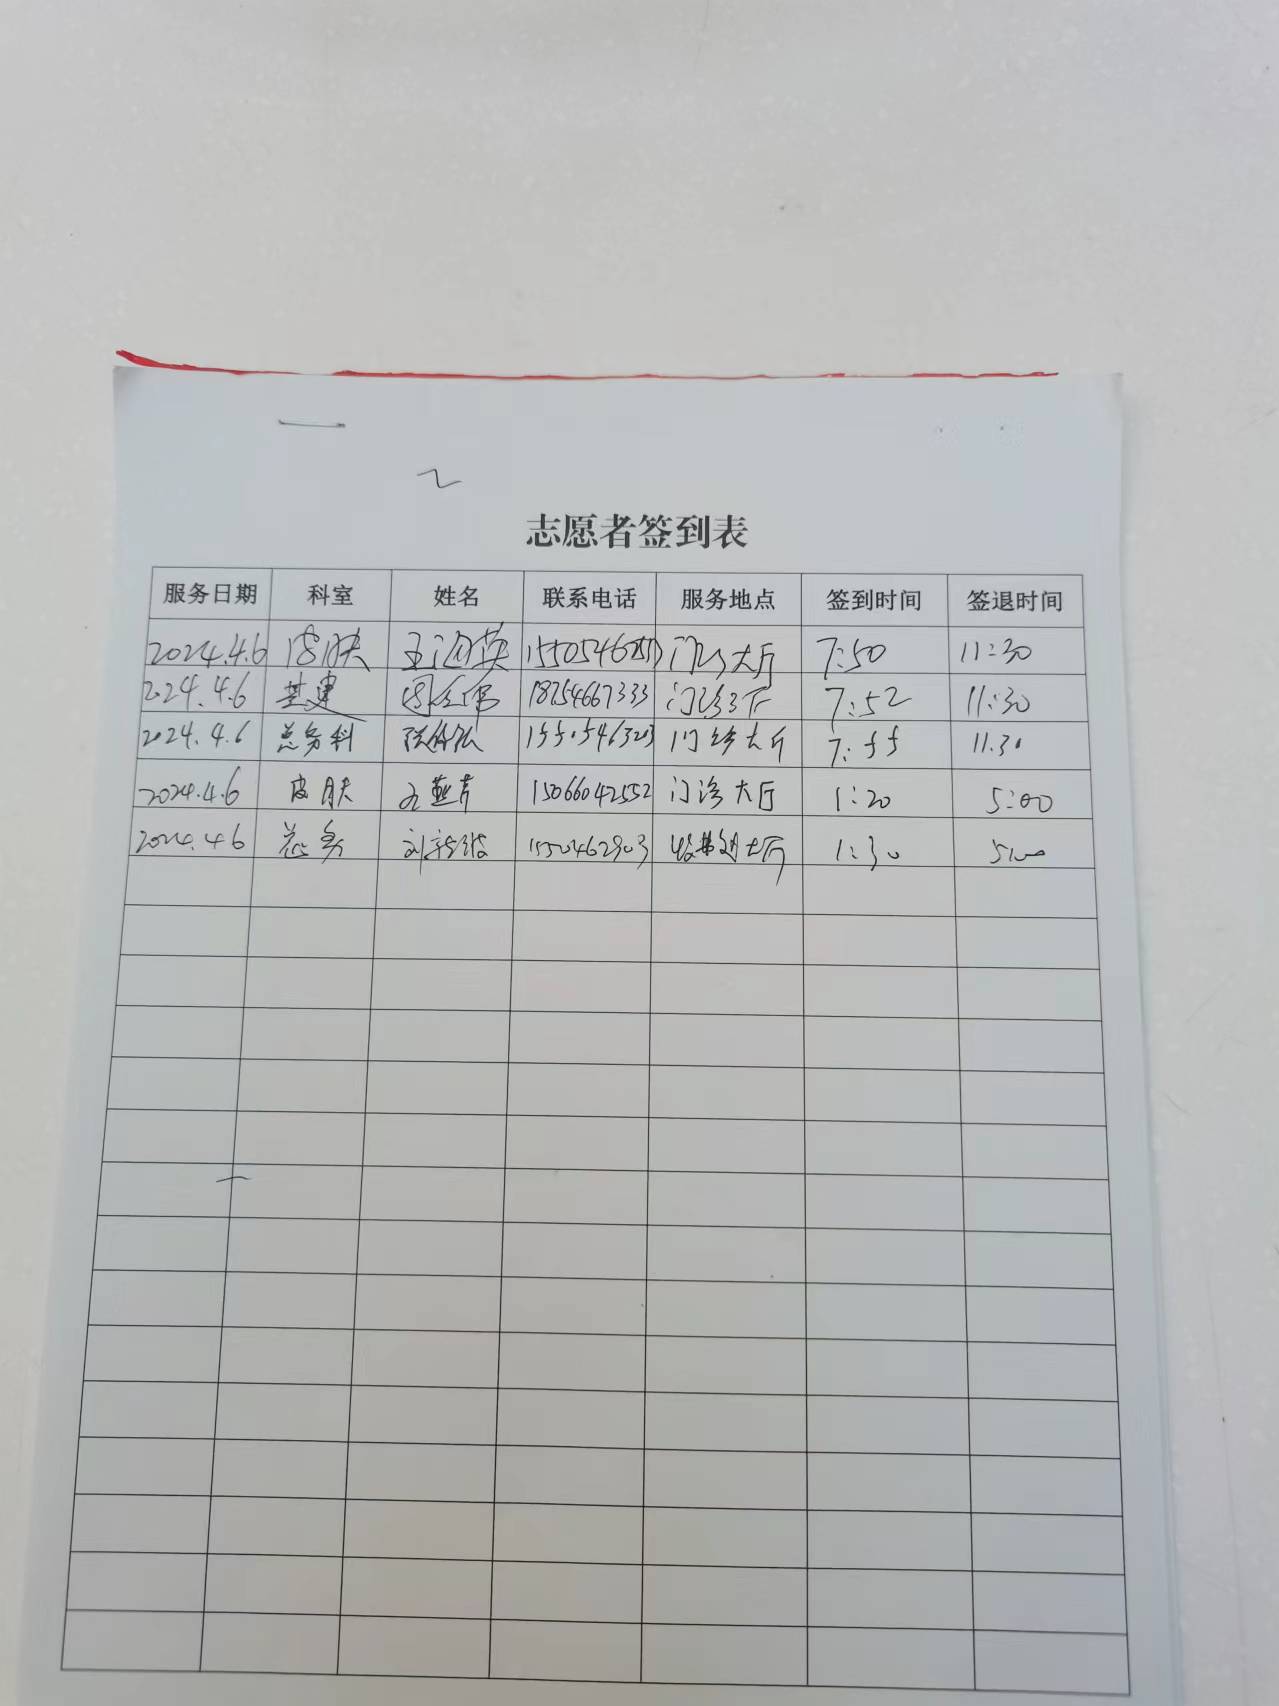 志愿者签到表
服务日期 科室 姓名 联系电话 服务地点 签到时间 签退时间
2024.4.6 皮肤 门诊大厅 7:50 11:30
2024.4.6 基建 18254667333 门诊 7:52 11:30
2024.4.6 总务科 门诊大厅 7:55 11.30
2024.4.6 皮肤 15066042552 门诊大厅 1:20 5:00
2024.4.6 总务 15504462903 大厅 1:30 5:00